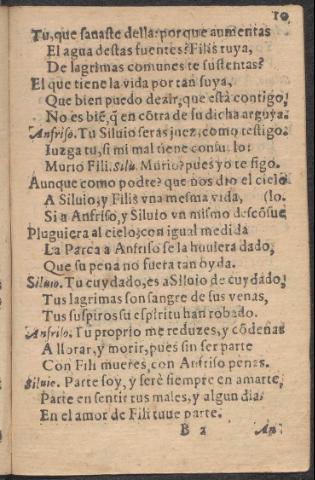 10
Tu, que sanaste della: porque aumentas
El agua destas fuentes? Filis tuya,
De lagrimas comunes te sustentas?
El que tiene la vida por tan suya,
Que bien puedo dezir, que està contigo,
No es biē, q̄ en cōtra de su dicha arguya.
Anfriso. Tu Siluio seras juez, como testigo.
Iuzga tu, si mi mal tiene consuelo:
Murio Fili. Silu. Murio? pues yo te sigo.
Aunque como podre? que nos dio el cielo
A Siluio, y Filis vna mesma vida, (lo.
Si a Anfriso, y Siluio vn mismo descōsue
Pluguiera al cielo, con igual medida
La Parca a Anfriso se la huuiera dado,
Que su pena no fuera tan oyda.
Siluio. Tu cuydado, es a Siluio de cuydado,
Tus lagrimas son sangre de sus venas,
Tus suspiros su espiritu han robado.
Anfriso. Tu proprio me reduzes, y cōdenas
A llorar, y morir, pues sin ser parte
Con Fili mueres, con Anfriso penas.
Siluio. Parte soy, y serè siempre en amarte,
Parte en sentir tus males, y algun dia
En el amor de Fili tuue parte.
B 2 An-